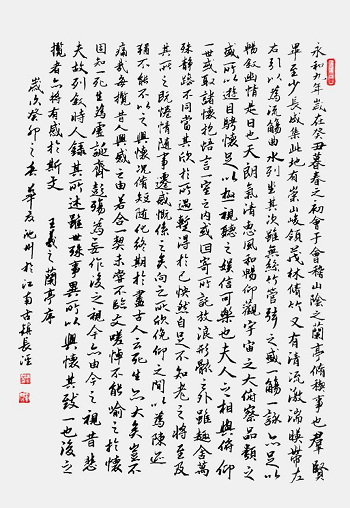 永和九年歲在癸丑暮春之初會于會稽山陰之蘭亭脩稧事也羣賢
畢至少長咸集此地有崇山峻領茂林脩竹又有清流激湍暎帶左
右引以為流觴曲水列坐其次雖無絲竹管弦之盛一觴一詠亦足以
暢敘幽情是日也天朗氣清惠風和暢仰觀宇宙之大俯察品類之
盛所以遊目騁懷足以極視聽之娛信可樂也夫人之相與俯仰
一世或取諸懷抱悟言一室之內或因寄所託放浪形骸之外雖趣舍萬
殊靜躁不同當其欣於所遇暫得於己快然自足不知老之將至及
其所之既惓情隨事遷感慨係之矣向之所欣俛仰之間以為陳迹
猶不能不以之興懷況脩短隨化終期於盡古人云死生亦大矣豈不
痛哉每攬昔人興感之由若合一契未嘗不臨文嗟悼不能喻之於懷
固知一死生為虛誕齊彭殤為妄作後之視今亦由今之視昔悲
夫故列敘時人錄其所述雖世殊事異所以興懷其致一也後之
攬者亦將有感於斯文 王羲之蘭亭序
歲次癸卯之春 池州於江南古鎮長涇